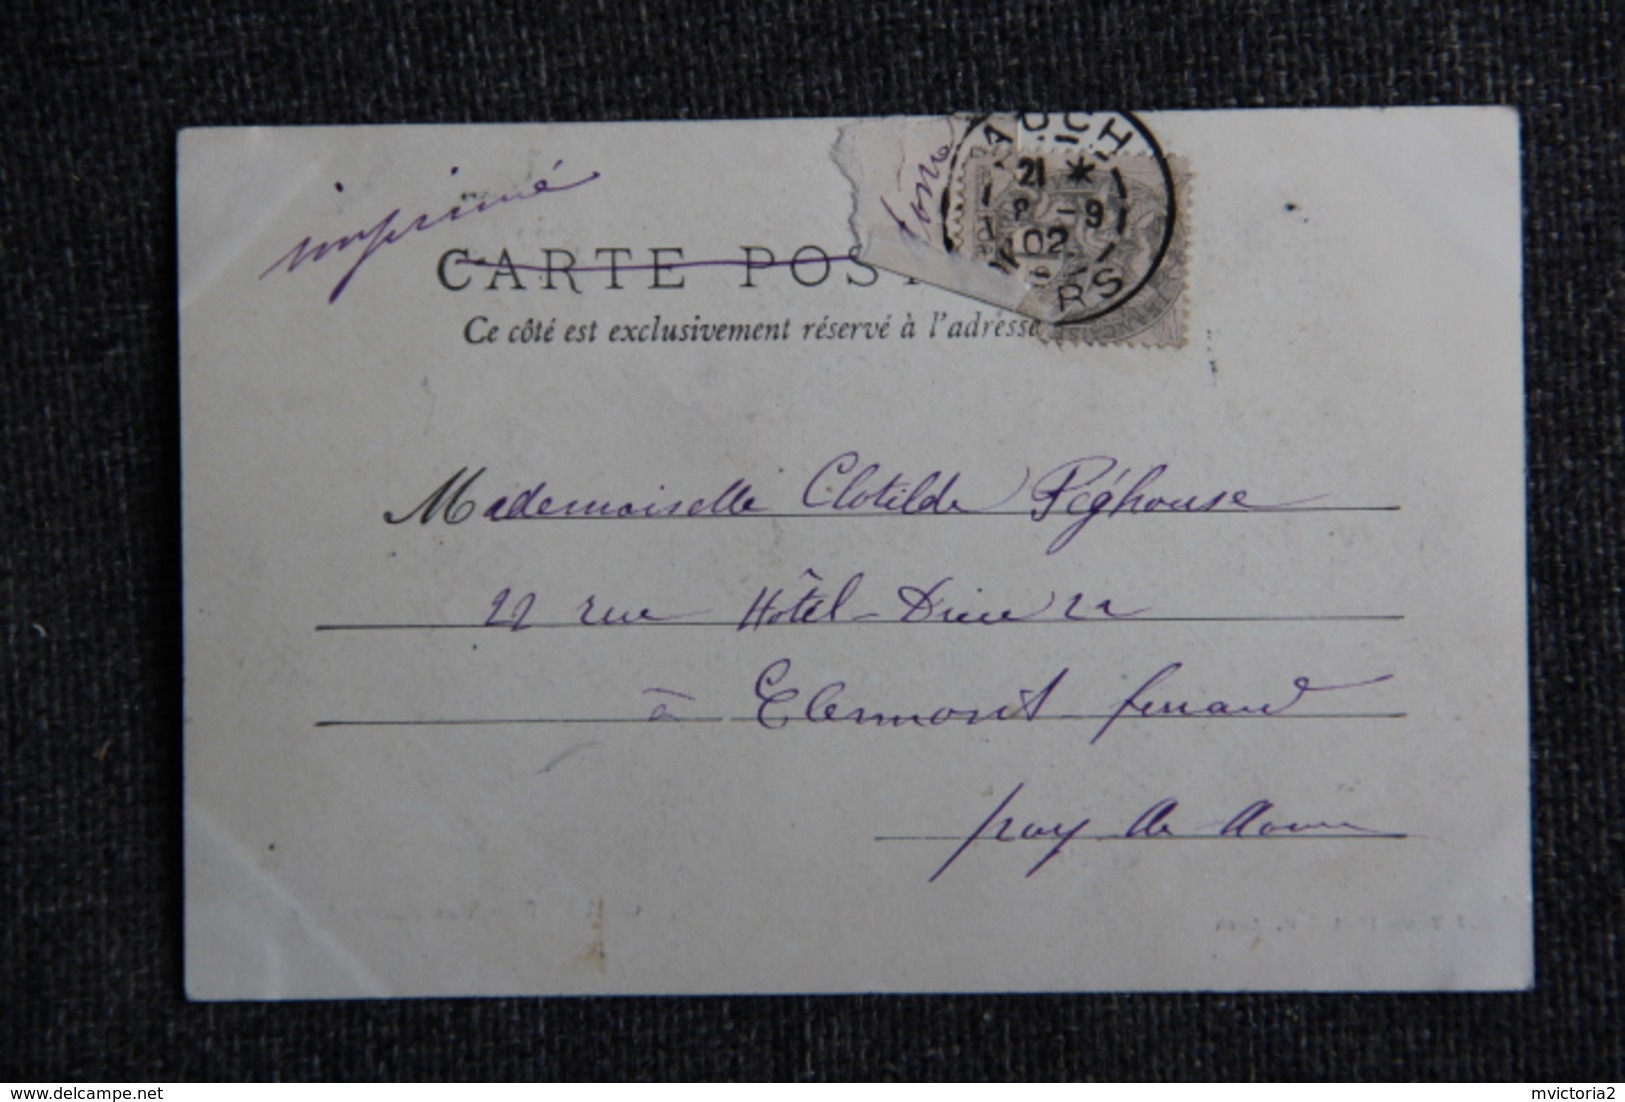 imprimé
AUCH
21 *
8 - 9
02
RS
CARTE POST
Ce côté est exclusivement réservé à l'adresse
Mademoiselle Clotilde Péghouse
22 rue Hôtel-Dieu 22
à Clermont ferrand
puy de dome
mvictoria2